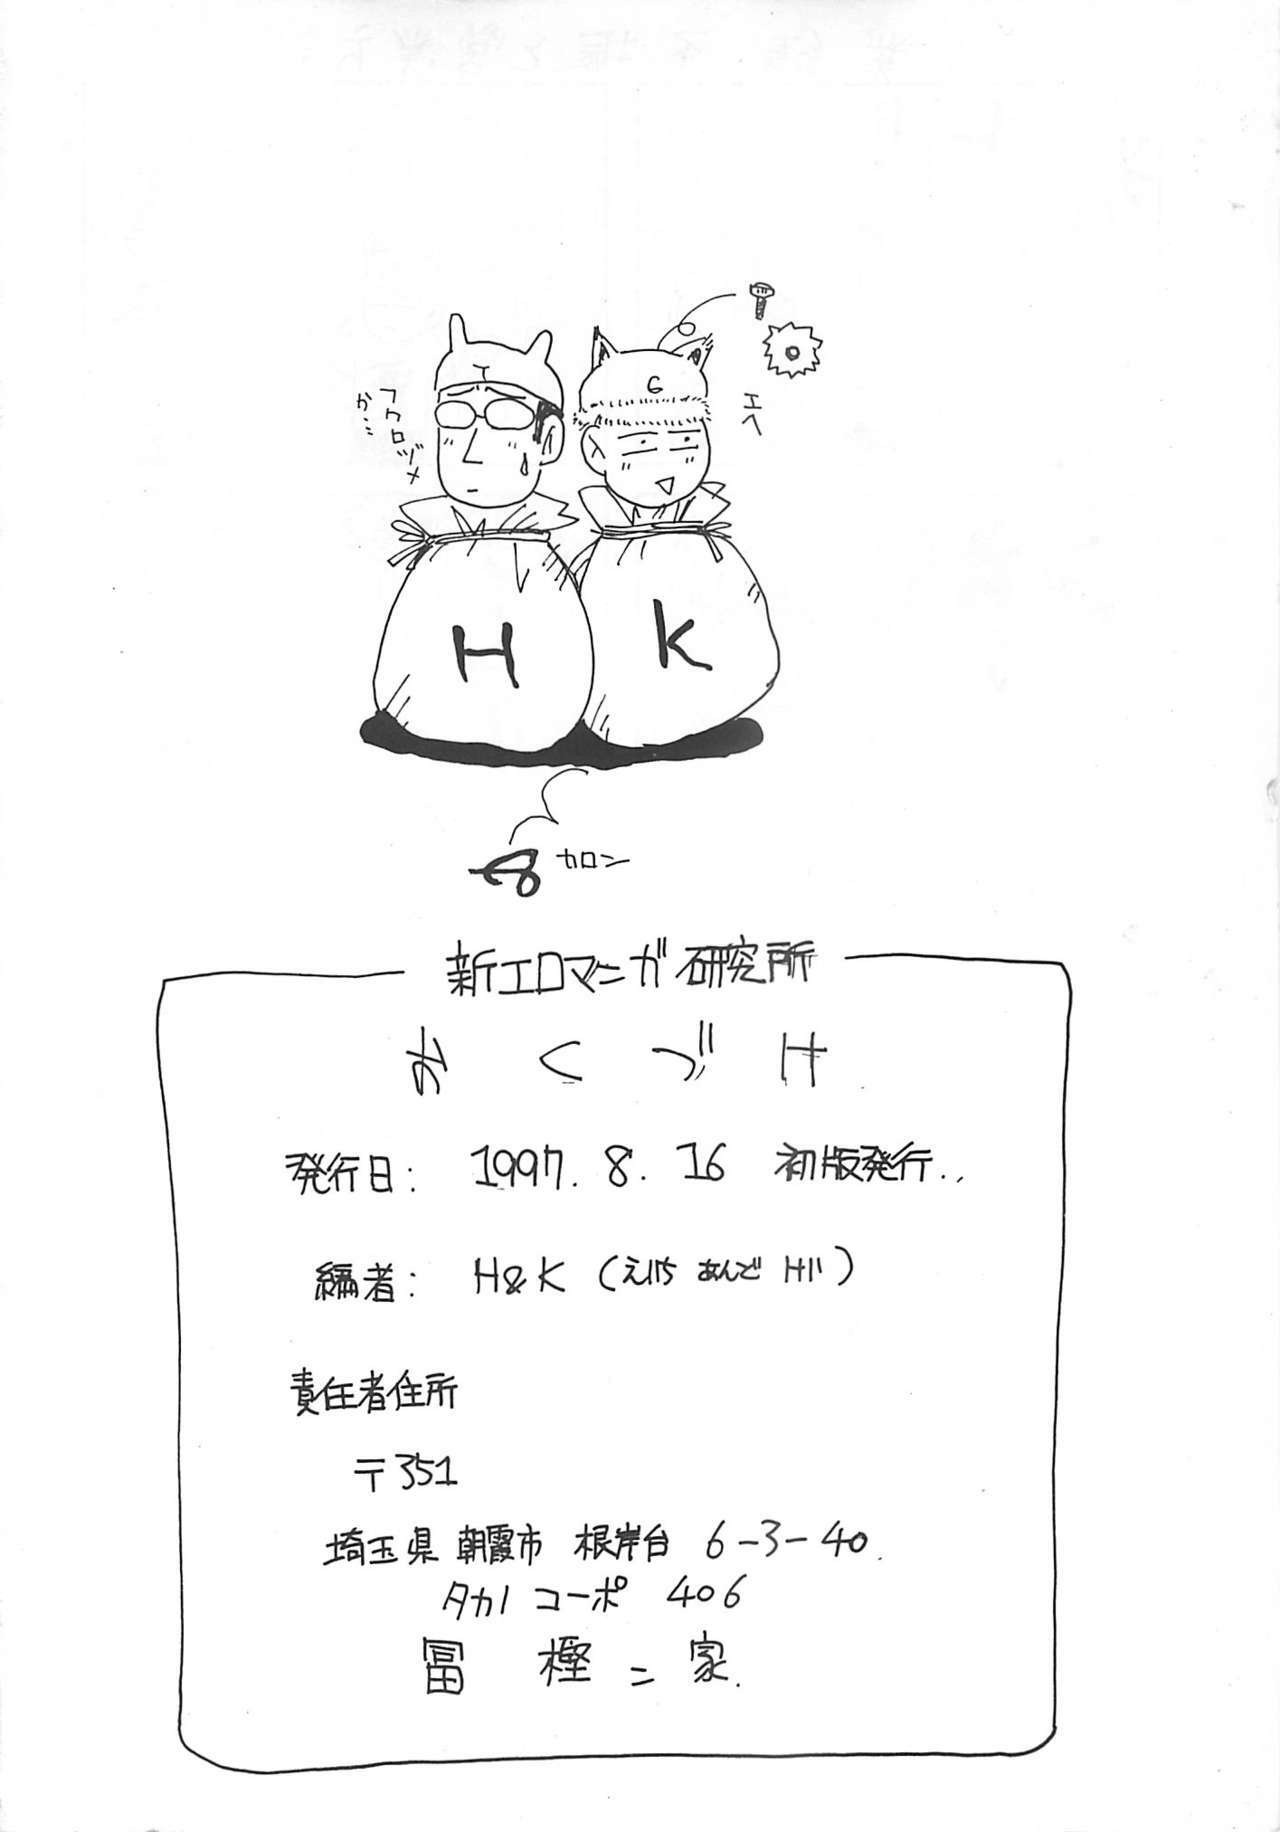 フクロヅメ
か…
G
エヘ
H K
カロン
新エロマンガ研究所
おくづけ
発行日: 1997. 8. 16 初版発行..
編者: H&K (えいち あんど けい)
責任者住所
〒351
埼玉県 朝霞市 根岸台 6-3-40.
タカノ コーポ 406
冨樫ニ家.